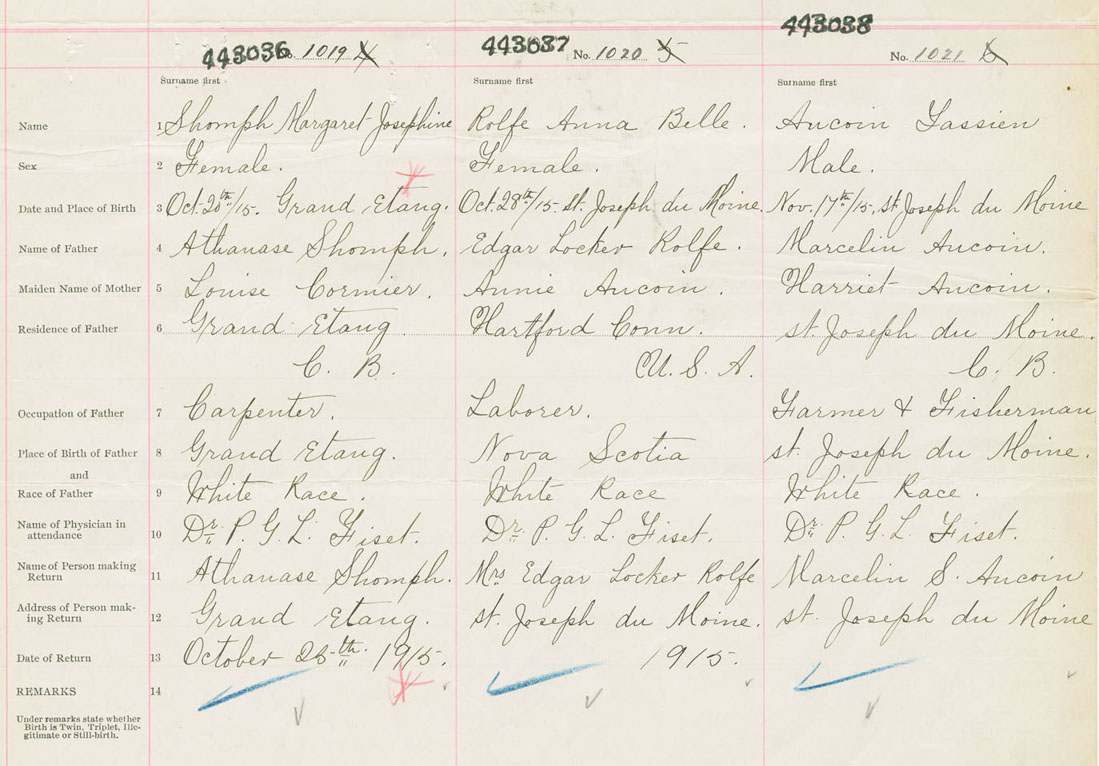 443036 No. 1019 443037 No. 1020 443038 No. 1021
Surname first Surname first Surname first
Name 1 Shomph Margaret Josephine Rolfe Anna Belle. Aucoin Tassien
Sex 2 Female. Female. Male.
Date and Place of Birth 3 Oct. 20th/15. Grand Etang. Oct. 28th/15. st. Joseph du Moine. Nov. 17th/15. st. Joseph du Moine
Name of Father 4 Athanase Shomph. Edgar Locker Rolfe. Marcelin Aucoin.
Maiden Name of Mother 5 Louise Cormier. Annie Aucoin. Harriet Aucoin.
Residence of Father 6 Grand Etang Hartford Conn. st. Joseph du Moine.
C. B. U. S. A. C. B.
Occupation of Father 7 Carpenter. Laborer. Farmer & Fisherman
Place of Birth of Father 8 Grand Etang. Nova Scotia st. Joseph du Moine.
and
Race of Father 9 White Race. White Race White Race.
Name of Physician in
attendance 10 Dr. P. G. L. Fiset. Dr. P. G. L. Fiset. Dr. P. G. L. Fiset.
Name of Person making
Return 11 Athanase Shomph. Mrs Edgar Locker Rolfe Marcelin S. Aucoin
Address of Person mak-
ing Return 12 Grand Etang. st. Joseph du Moine. st. Joseph du Moine
Date of Return 13 October th. 1915. 1915.
REMARKS 14
Under remarks state whether
Birth is Twin, Triplet, Ille-
gitimate or Still-birth.